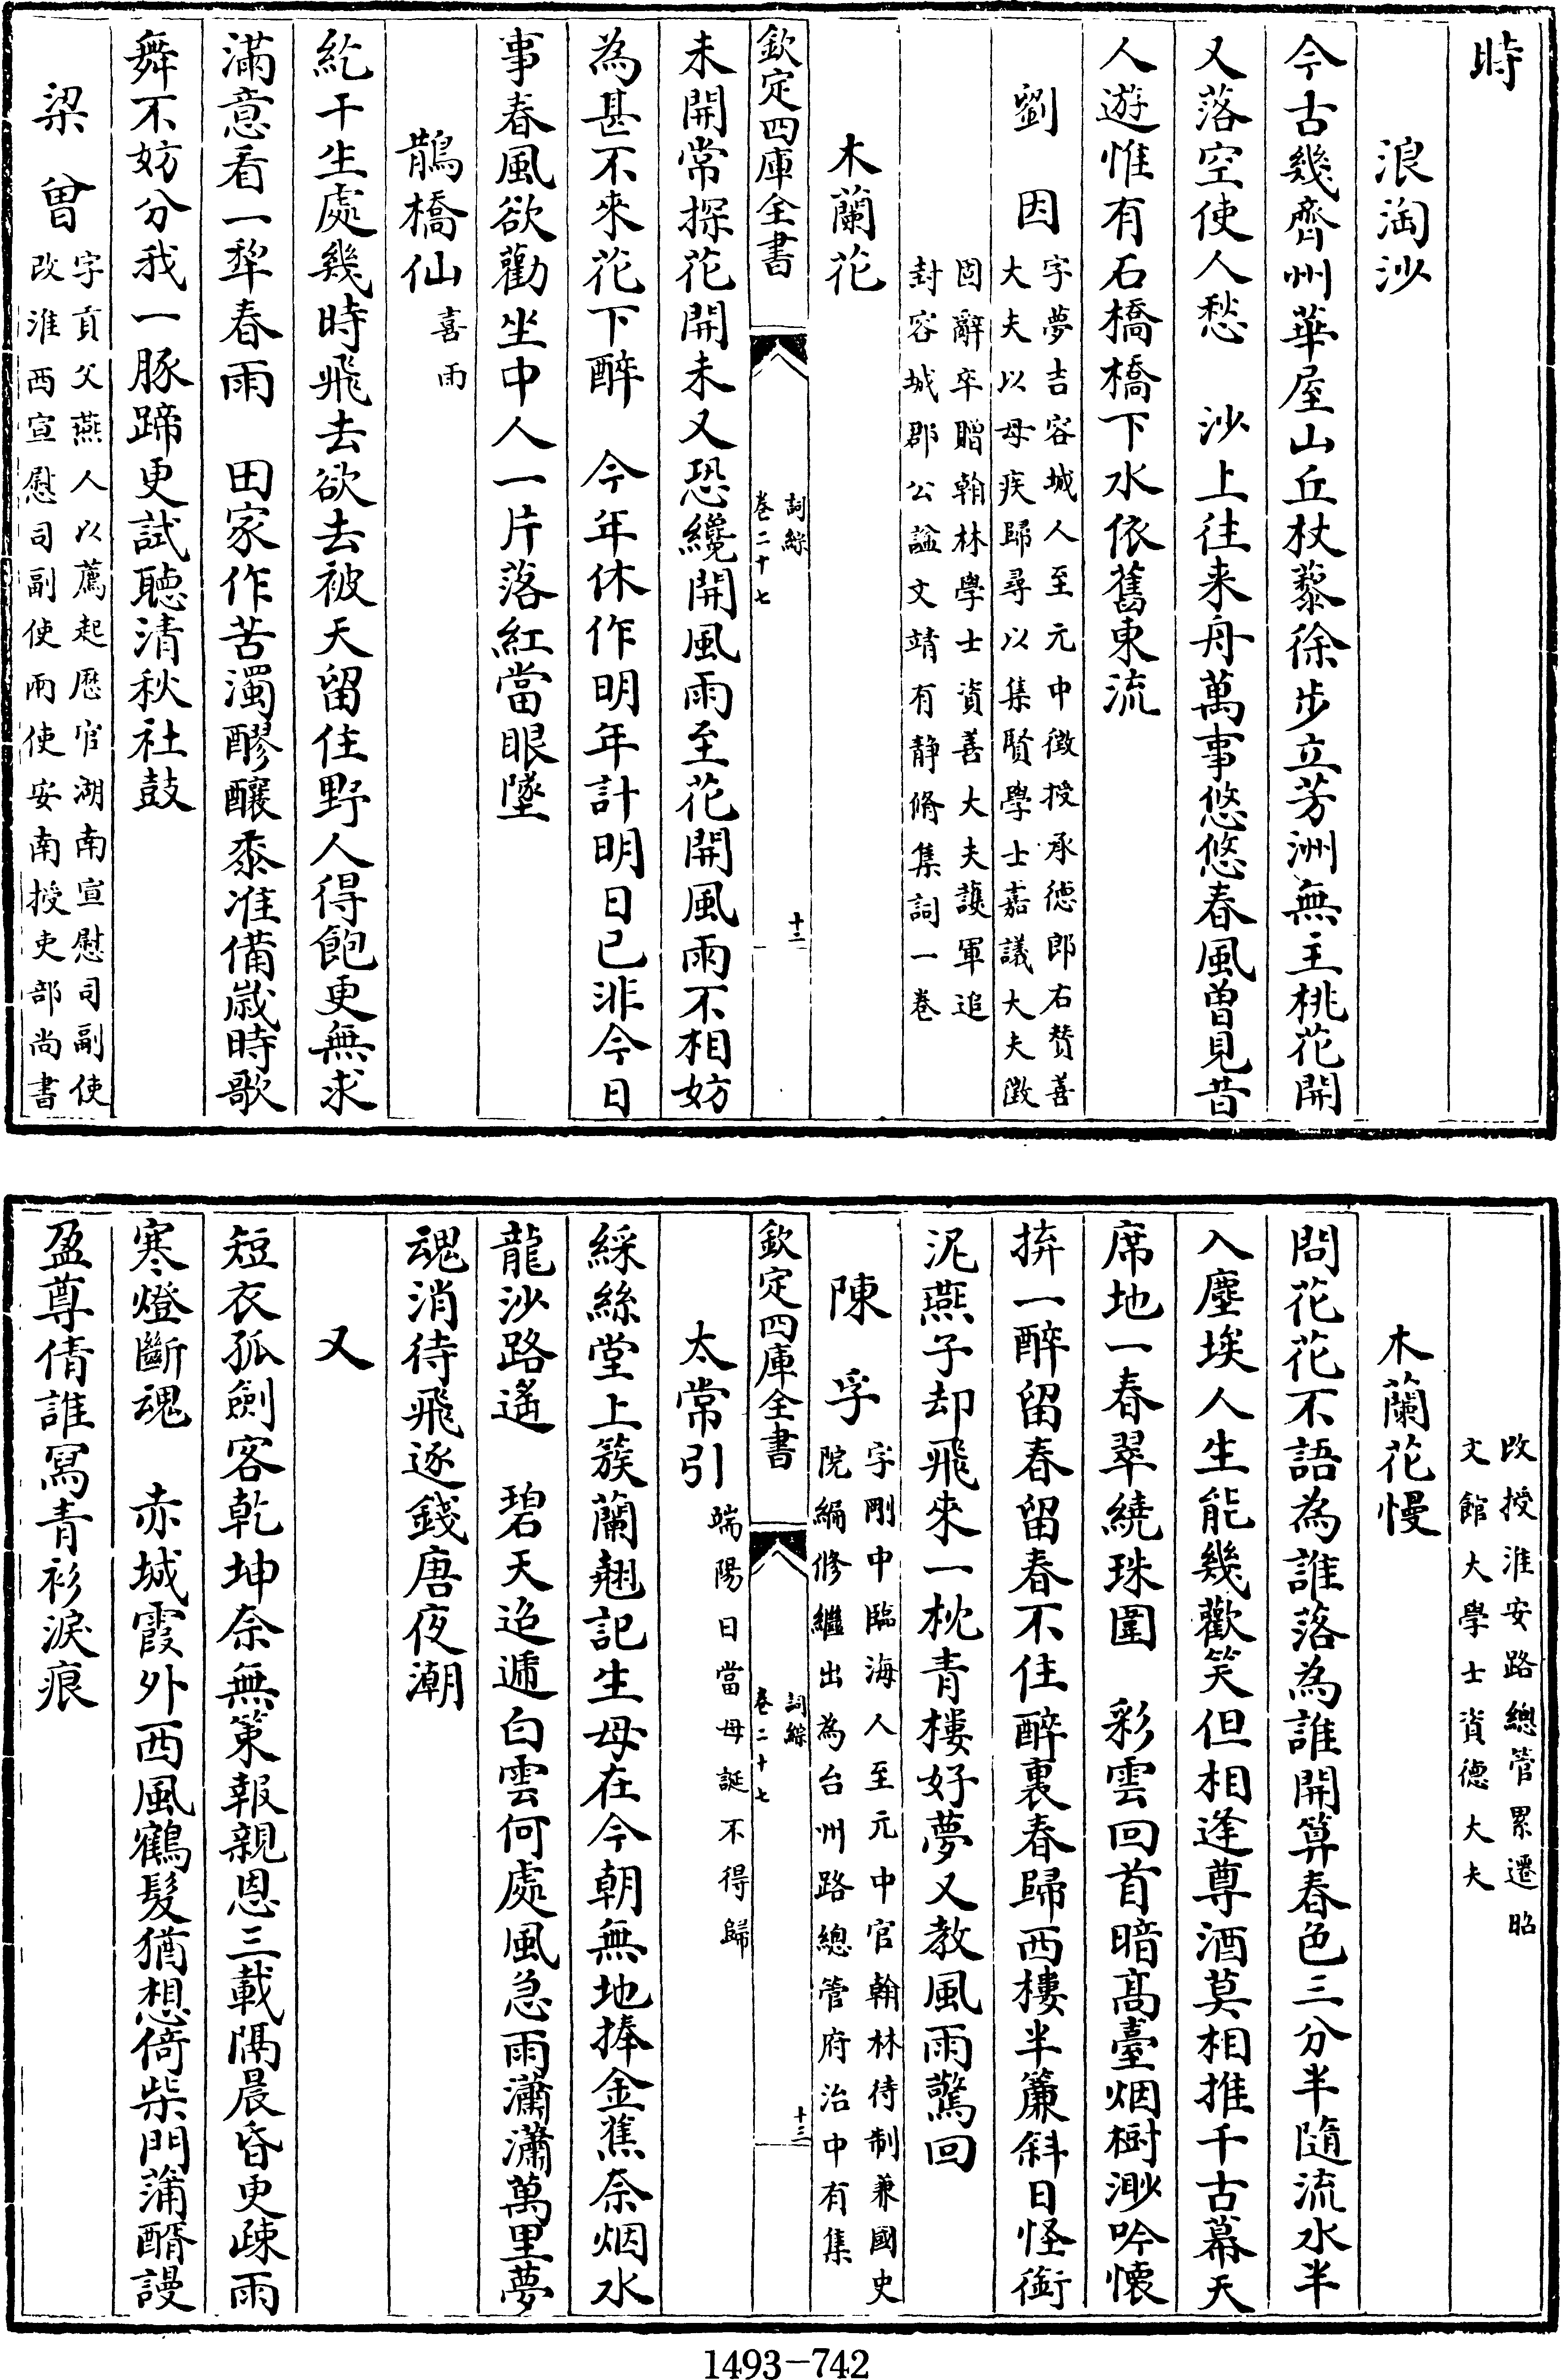 時
浪淘沙
今古幾齊州華屋山丘杖藜徐步立芳洲無主桃花開
又落空使人愁　沙上往来舟萬事悠悠春風曽見昔
人遊惟有石橋橋下水依舊東流
劉因字夢吉容城人至元中徴授承徳郎右賛善
大夫以母疾歸尋以集賢學士嘉議大夫徴
固辭卒贈翰林學士資善大夫護軍追
封容城郡公諡文靖有静脩集詞一卷
木蘭花
欽定四庫全書
詞綜
卷二十七
十二
未開常探花開未又恐纔開風雨至花開風雨不相妨
為甚不來花下醉　今年休作明年計明日已非今日
事春風欲勸坐中人一片落紅當眼墜
鵲橋仙喜雨
紇干生處幾時飛去欲去被天留住野人得飽更無求
滿意看一犂春雨　田家作苦濁醪釀黍准備歳時歌
舞不妨分我一豚蹄更試聽清秋社鼓
梁曾字貢父燕人以薦起歴官湖南宣慰司副使
改淮西宣慰司副使兩使安南授吏部尚書
改授淮安路總管累遷昭
文館大學士資德大夫
木蘭花慢
問花花不語為誰落為誰開算春色三分半隨流水半
入塵埃人生能幾歡笑但相逢尊酒莫相推千古幕天
席地一春翠繞珠圍　彩雲回首暗髙臺烟樹渺吟懐
拚一醉留春留春不住醉裏春歸西樓半簾斜日怪銜
泥燕子却飛來一枕青樓好夢又教風雨驚回
陳孚字剛中臨海人至元中官翰林待制兼國史
院編修繼出為台州路總管府治中有集
欽定四庫全書
詞綜
卷二十七
十三
太常引端陽日當母誕不得歸
綵絲堂上簇蘭翹記生母在今朝無地捧金蕉奈烟水
龍沙路遙　碧天迢遞白雲何處風急雨瀟瀟萬里夢
魂消待飛逐錢唐夜潮
又
短衣孤劍客乾坤奈無策報親恩三載隔晨昏更疎雨
寒燈斷魂　赤城霞外西風鶴髮猶想倚柴門蒲醑謾
盈尊倩誰冩青衫淚痕
1493-742